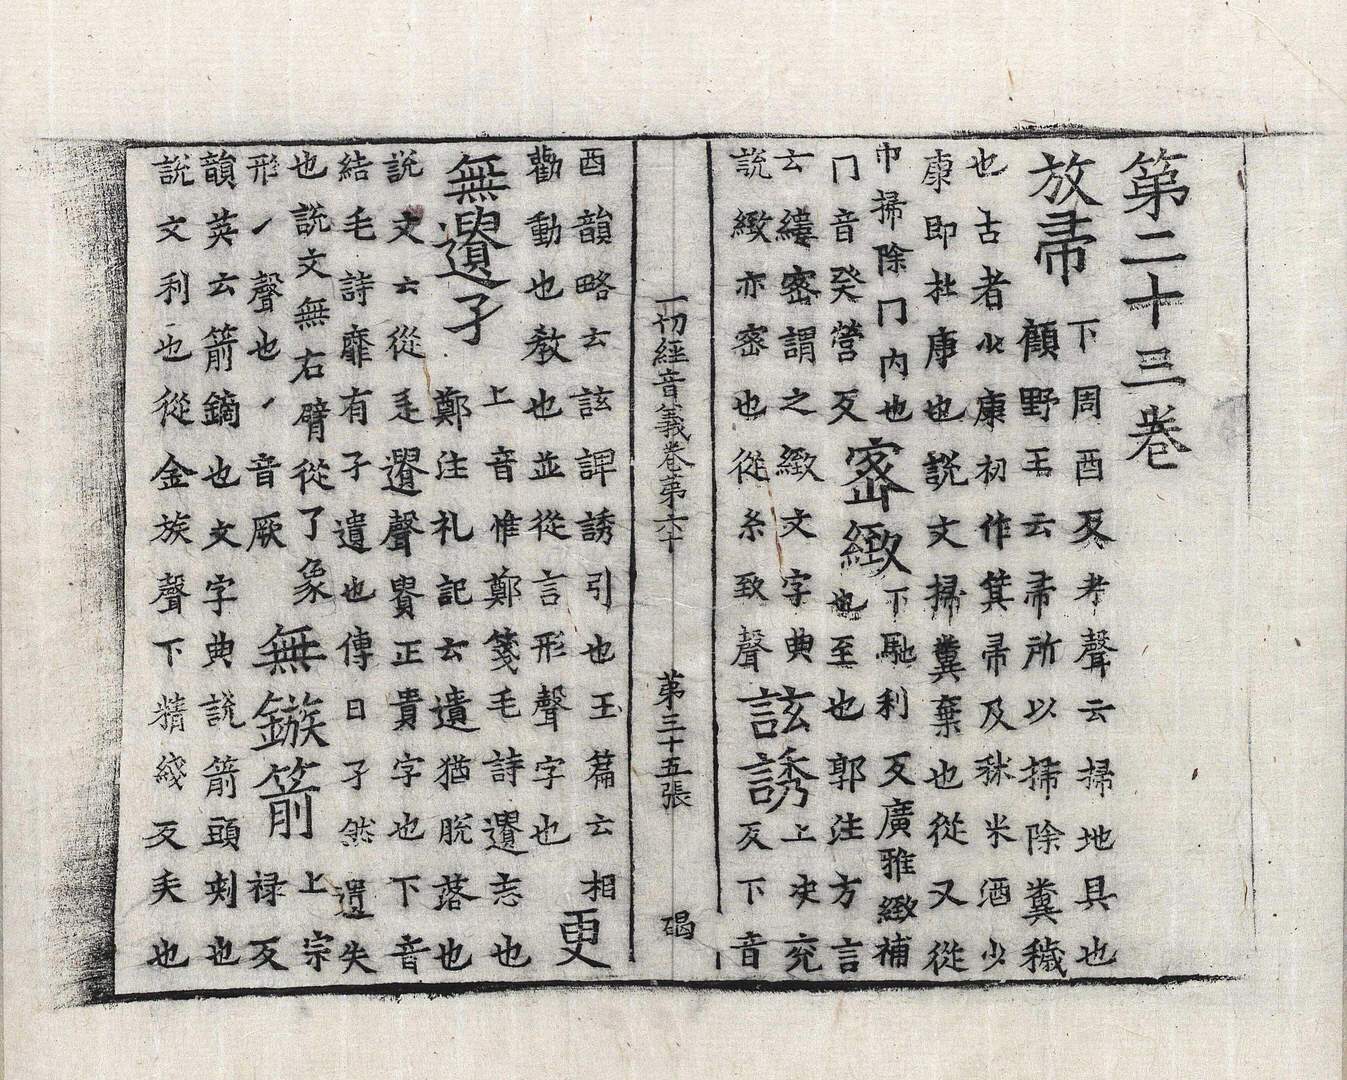 第二十三卷
放帚
下周酉反考聲云掃地具也
顧野王云帚所以掃除糞穢
也古者少康初作箕帚及秫米酒少
康即杜康也説文掃糞棄也從又從
巾掃除冂內也
冂音癸營反
密緻
下馳利反廣雅緻補
也至也郭注方言
云縷密謂之緻文字典
説緻亦密也從糸致聲
詃誘
上决兖
反下音
一切經音義卷第六十 第三十五張 碣
酉韻略云詃諀誘引也玉篇云相
勸動也教也並從言形聲字也
更
無遺孑
上音惟鄭箋毛詩遺忘也
鄭注礼記云遺猶脫落也
説文云從辵䝿聲䝿正貴字也下音
結毛詩靡有孑遺也傳曰孑然遺失
也説文無右臂從了象
形丿聲也丿音厥
無鏃箭
上宗
祿反
韻英云箭鏑也文字典説箭頭刺也
説文利也從金族聲下精綫反矢也